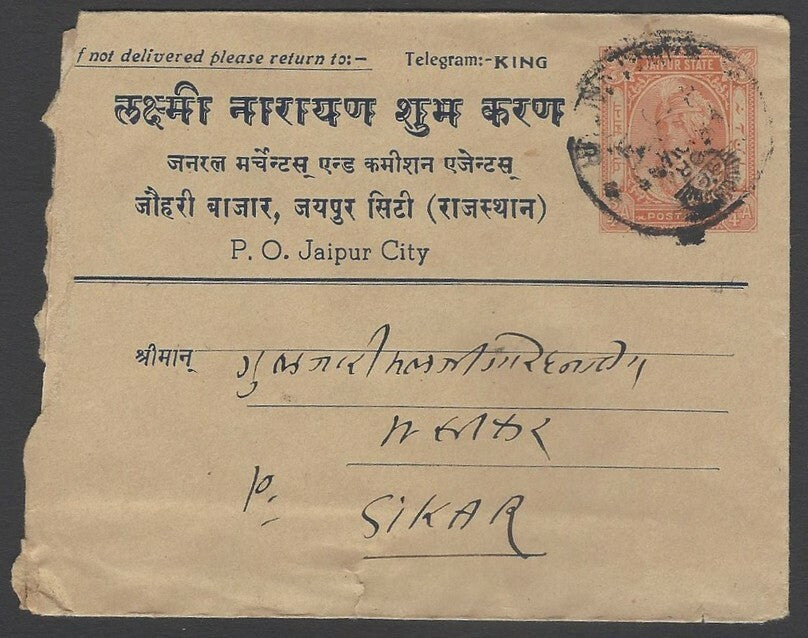 f not delivered please return to:—
Telegram:-KING
JAIPUR STATE
लक्ष्मी नारायण शुभ करण
जनरल मर्चेन्टस् एन्ड कमीशन एजेन्टस्
जौहरी बाजार, जयपुर सिटी (राजस्थान)
P. O. Jaipur City
POSTA
श्रीमान्
सीकर
P.
SIKAR